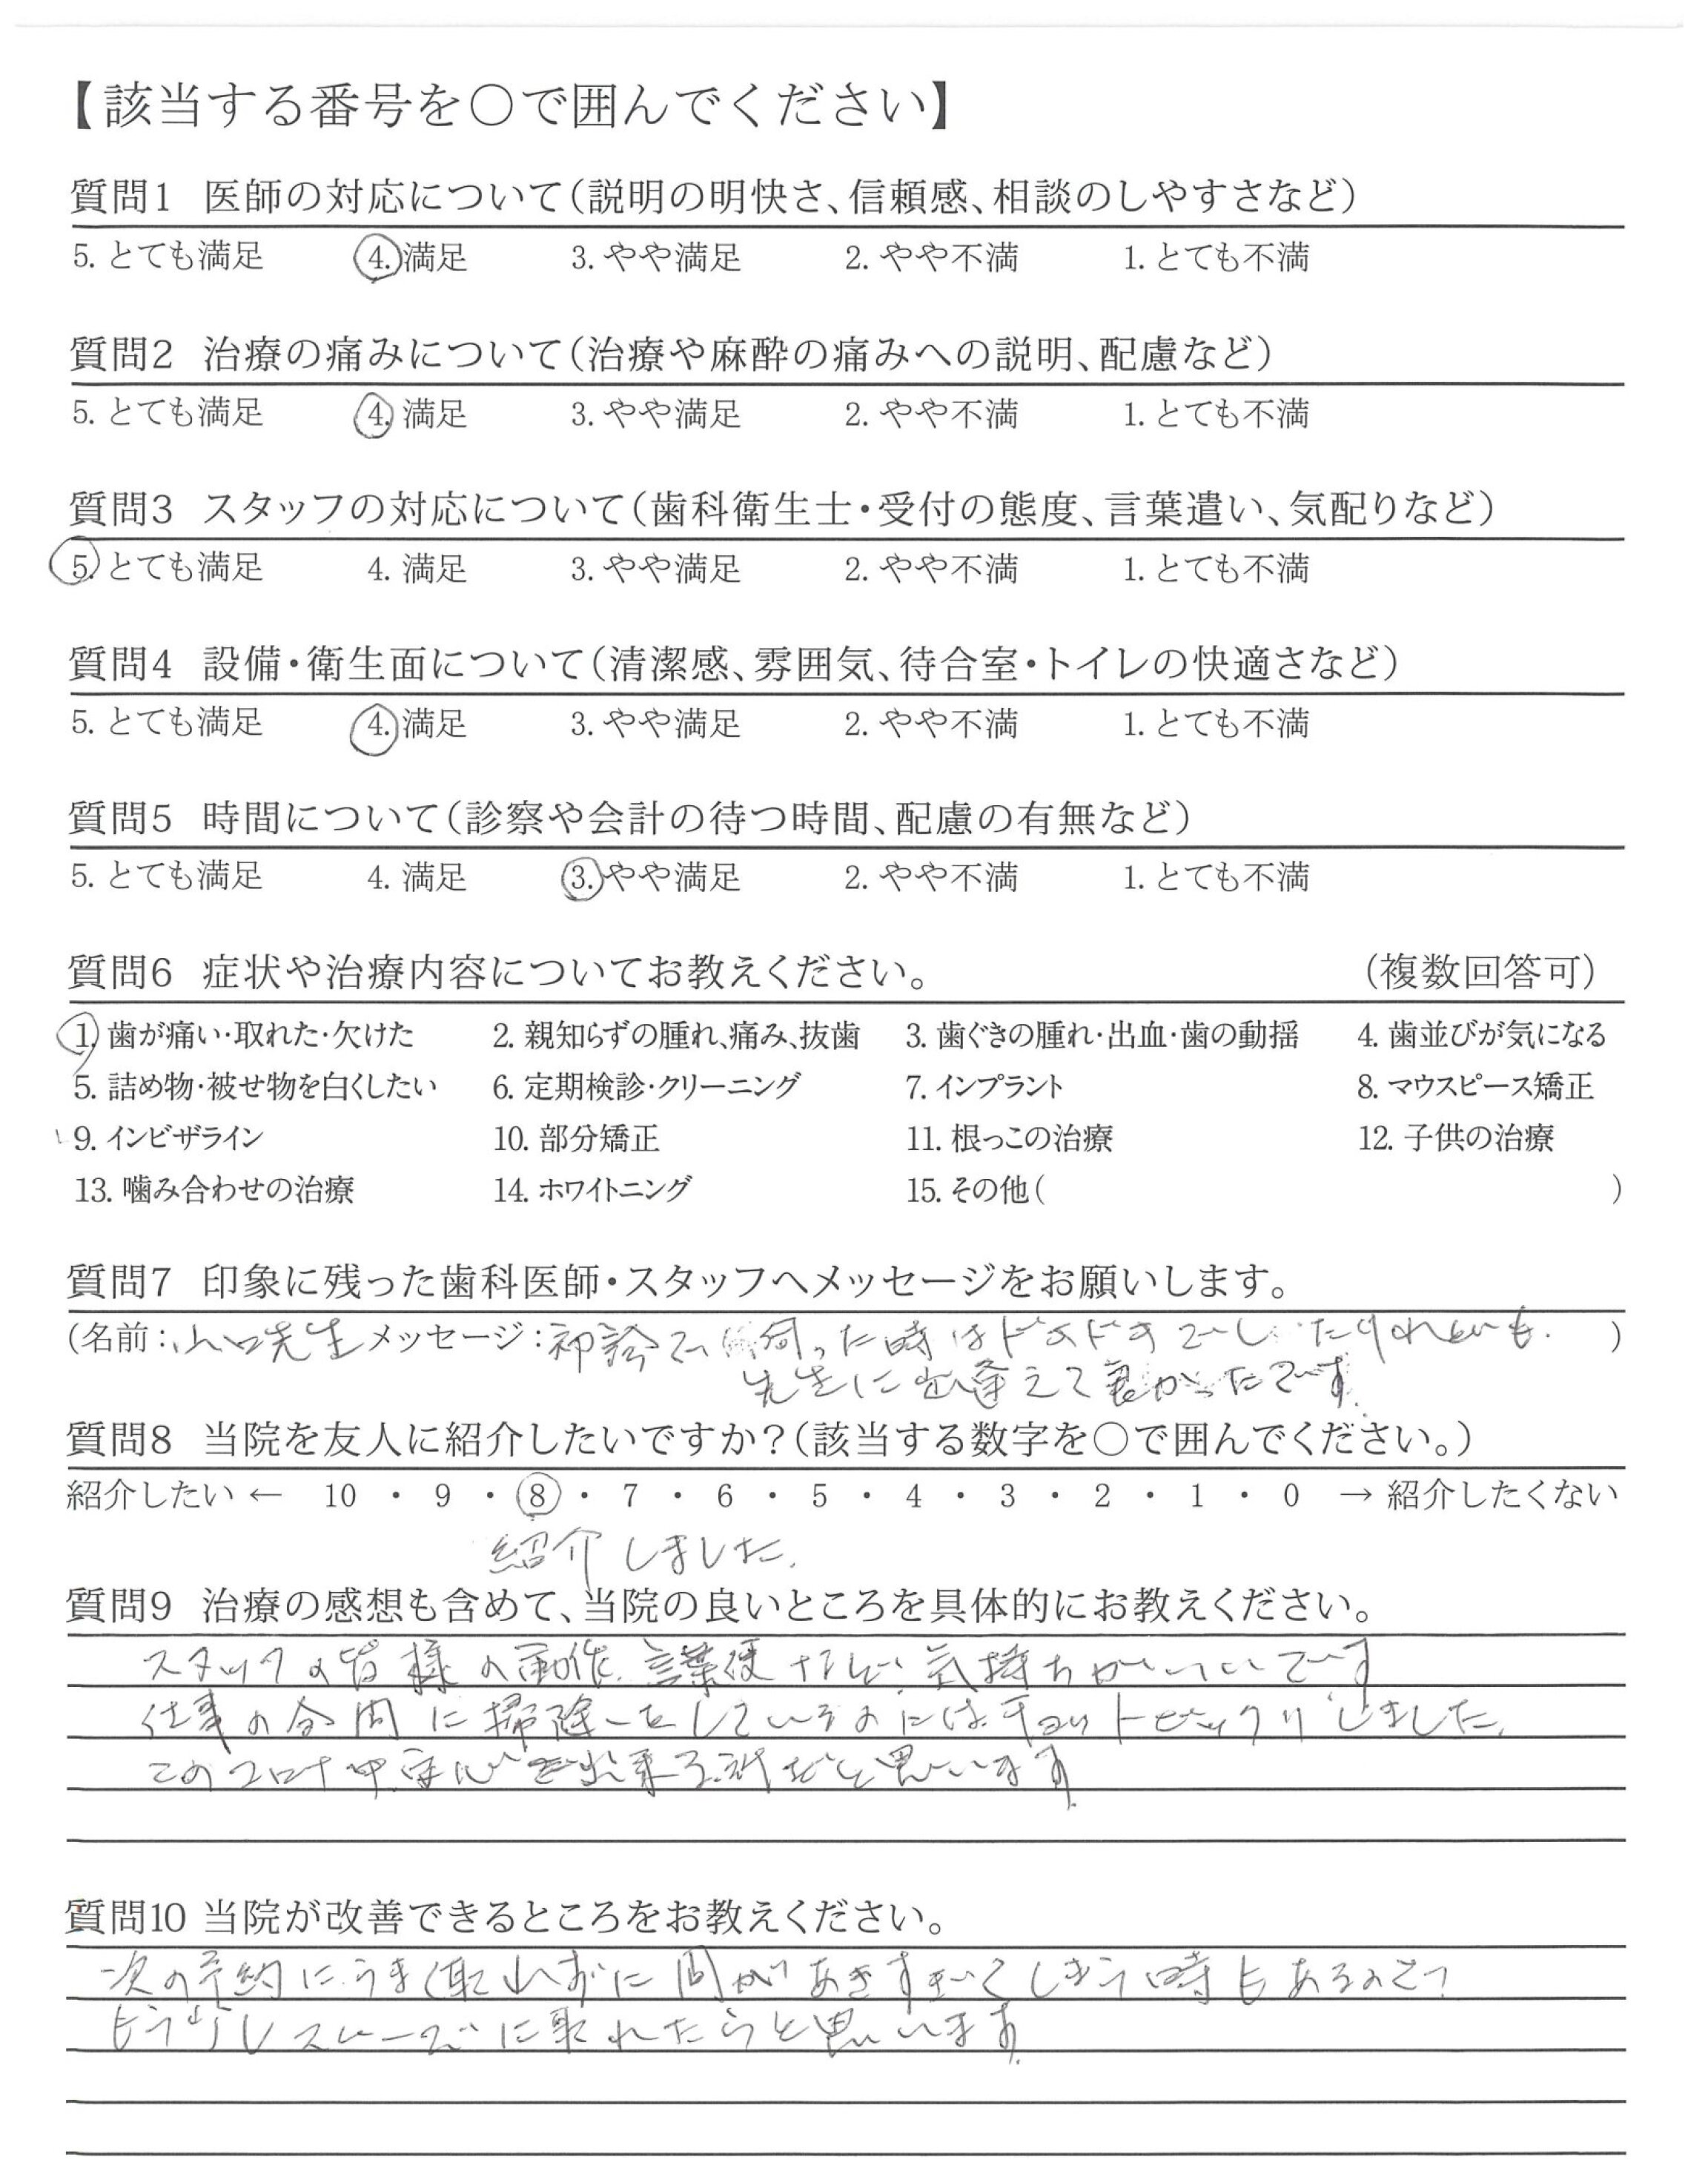 【該当する番号を〇で囲んでください】
質問1 医師の対応について(説明の明快さ、信頼感、相談のしやすさなど)
5. とても満足 4. 満足 3. やや満足 2. やや不満 1. とても不満
質問2 治療の痛みについて(治療や麻酔の痛みへの説明、配慮など)
5. とても満足 4. 満足 3. やや満足 2. やや不満 1. とても不満
質問3 スタッフの対応について(歯科衛生士・受付の態度、言葉遣い、気配りなど)
5. とても満足 4. 満足 3. やや満足 2. やや不満 1. とても不満
質問4 設備・衛生面について(清潔感、雰囲気、待合室・トイレの快適さなど)
5. とても満足 4. 満足 3. やや満足 2. やや不満 1. とても不満
質問5 時間について(診察や会計の待つ時間、配慮の有無など)
5. とても満足 4. 満足 3. やや満足 2. やや不満 1. とても不満
質問6 症状や治療内容についてお教えください。 (複数回答可)
1. 歯が痛い・取れた・欠けた 2. 親知らずの腫れ、痛み、抜歯 3. 歯ぐきの腫れ・出血・歯の動揺 4. 歯並びが気になる
5. 詰め物・被せ物を白くしたい 6. 定期検診・クリーニング 7. インプラント 8. マウスピース矯正
9. インビザライン 10. 部分矯正 11. 根っこの治療 12. 子供の治療
13. 噛み合わせの治療 14. ホワイトニング 15. その他( )
質問7 印象に残った歯科医師・スタッフへメッセージをお願いします。
(名前:山口先生 メッセージ:初診で伺った時はドキドキでしたけれども. )
先生に出逢えて良かったです.
質問8 当院を友人に紹介したいですか?(該当する数字を〇で囲んでください。)
紹介したい ← 10 ・ 9 ・ 8 ・ 7 ・ 6 ・ 5 ・ 4 ・ 3 ・ 2 ・ 1 ・ 0 → 紹介したくない
紹介しました.
質問9 治療の感想も含めて、当院の良いところを具体的にお教えください。
スタッフの皆様の動作、言葉使など、気持ちがいいです
仕事の合間に掃除をしているのには、チョットビックリしました.
このコロナ中、安心出来る所だと思います.
質問10 当院が改善できるところをお教えください。
次の予約にうまく取れずに間があきすぎてしまう時もあるので
もう少しスムーズに取れたらと思います.